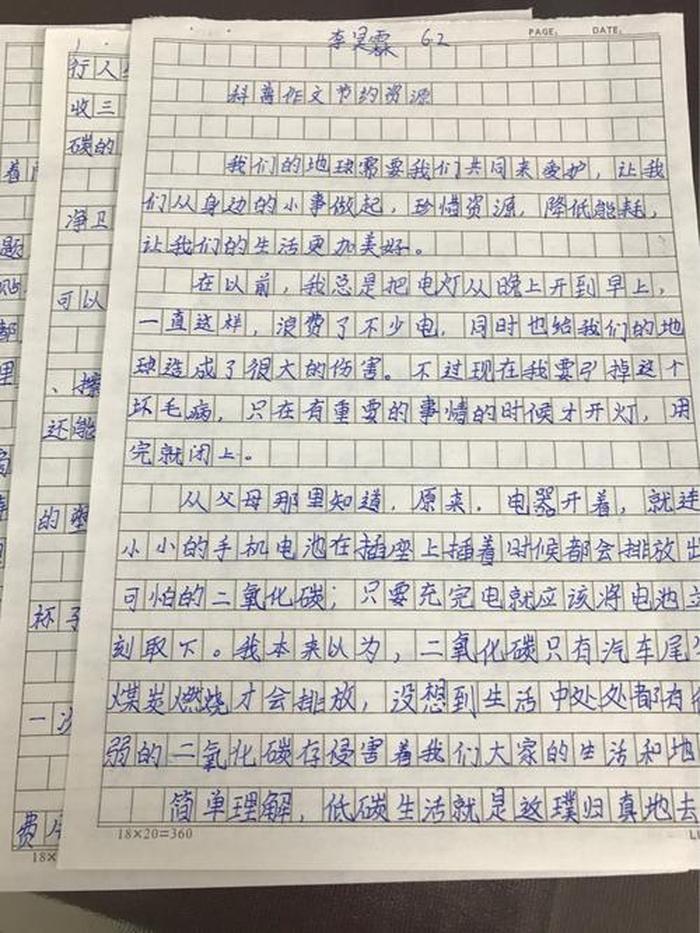 PAGE: DATE:
李昊霖 62
科普作文节约资源
我们的地球需要我们共同来爱护,让我
们从身边的小事做起,珍惜资源,降低能耗,
让我们的生活更加美好。
在以前,我总是把电灯从晚上开到早上,
一直这样,浪费了不少电,同时也给我们的地
球造成了很大的伤害。不过现在我要引掉这个
坏毛病,只在有重要的事情的时候才开灯,用
完就闭上。
从父母那里知道,原来,电器开着,就连
小小的手机电池在插座上插着时候都会排放出
可怕的二氧化碳;只要充完电就应该将电池立
刻取下。我本来以为,二氧化碳只有汽车尾
煤炭燃烧才会排放,没想到生活中处处都有
弱的二氧化碳存侵害着我们大家的生活和地
简单理解,低碳生活就是这璞归真地去
18×20=360
行人
收三
碳的
净卫
可以
、擦
还能
的塑
杯子
一次
费
18×
着
题
都
里